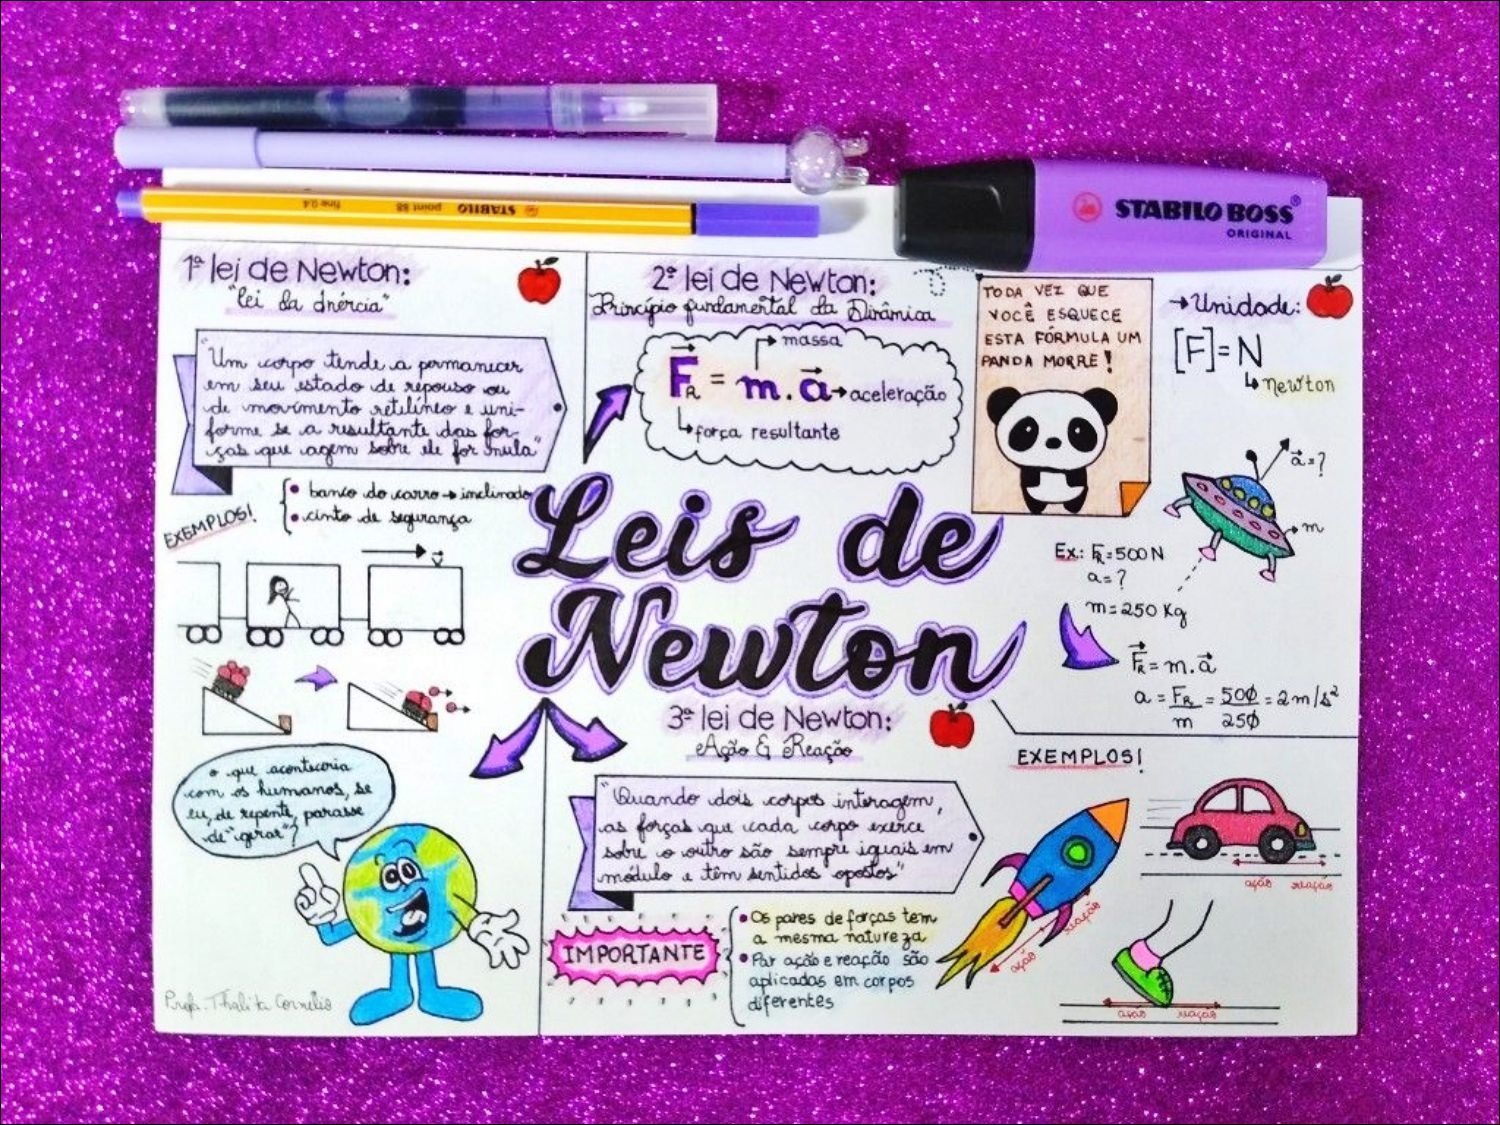 STABILO BOSS®
ORIGINAL
STABILO point 88 fine 0.4
1ª lei de Newton:
"lei da Inércia"
"Um corpo tende a permanecer
em seu estado de repouso ou
de movimento retilíneo e uni-
forme se a resultante das for-
ças que agem sobre ele for nula"
EXEMPLOS!
• banco do carro → inclinado
• cinto de segurança
v
o que aconteceria
com os humanos, se
eu, de repente, parasse
de "girar"?
Profa. Thalita Cornélio
2ª lei de Newton:
Princípio fundamental da Dinâmica
massa
FR = m.a → aceleração
força resultante
TODA VEZ QUE
VOCÊ ESQUECE
ESTA FÓRMULA UM
PANDA MORRE!
→ Unidade:
[F] = N
newton
a = ?
m
Ex: FR = 500 N
a = ?
m = 250 Kg
FR = m.a
a = FR/m = 500/250 = 2 m/s²
Leis de
Newton
3ª lei de Newton:
Ação & Reação
"Quando dois corpos interagem,
as forças que cada corpo exerce
sobre o outro são sempre iguais em
módulo e têm sentidos opostos"
IMPORTANTE
• Os pares de forças tem
a mesma natureza
• Par ação e reação são
aplicadas em corpos
diferentes
EXEMPLOS!
ação reação
ação reação
ação reação